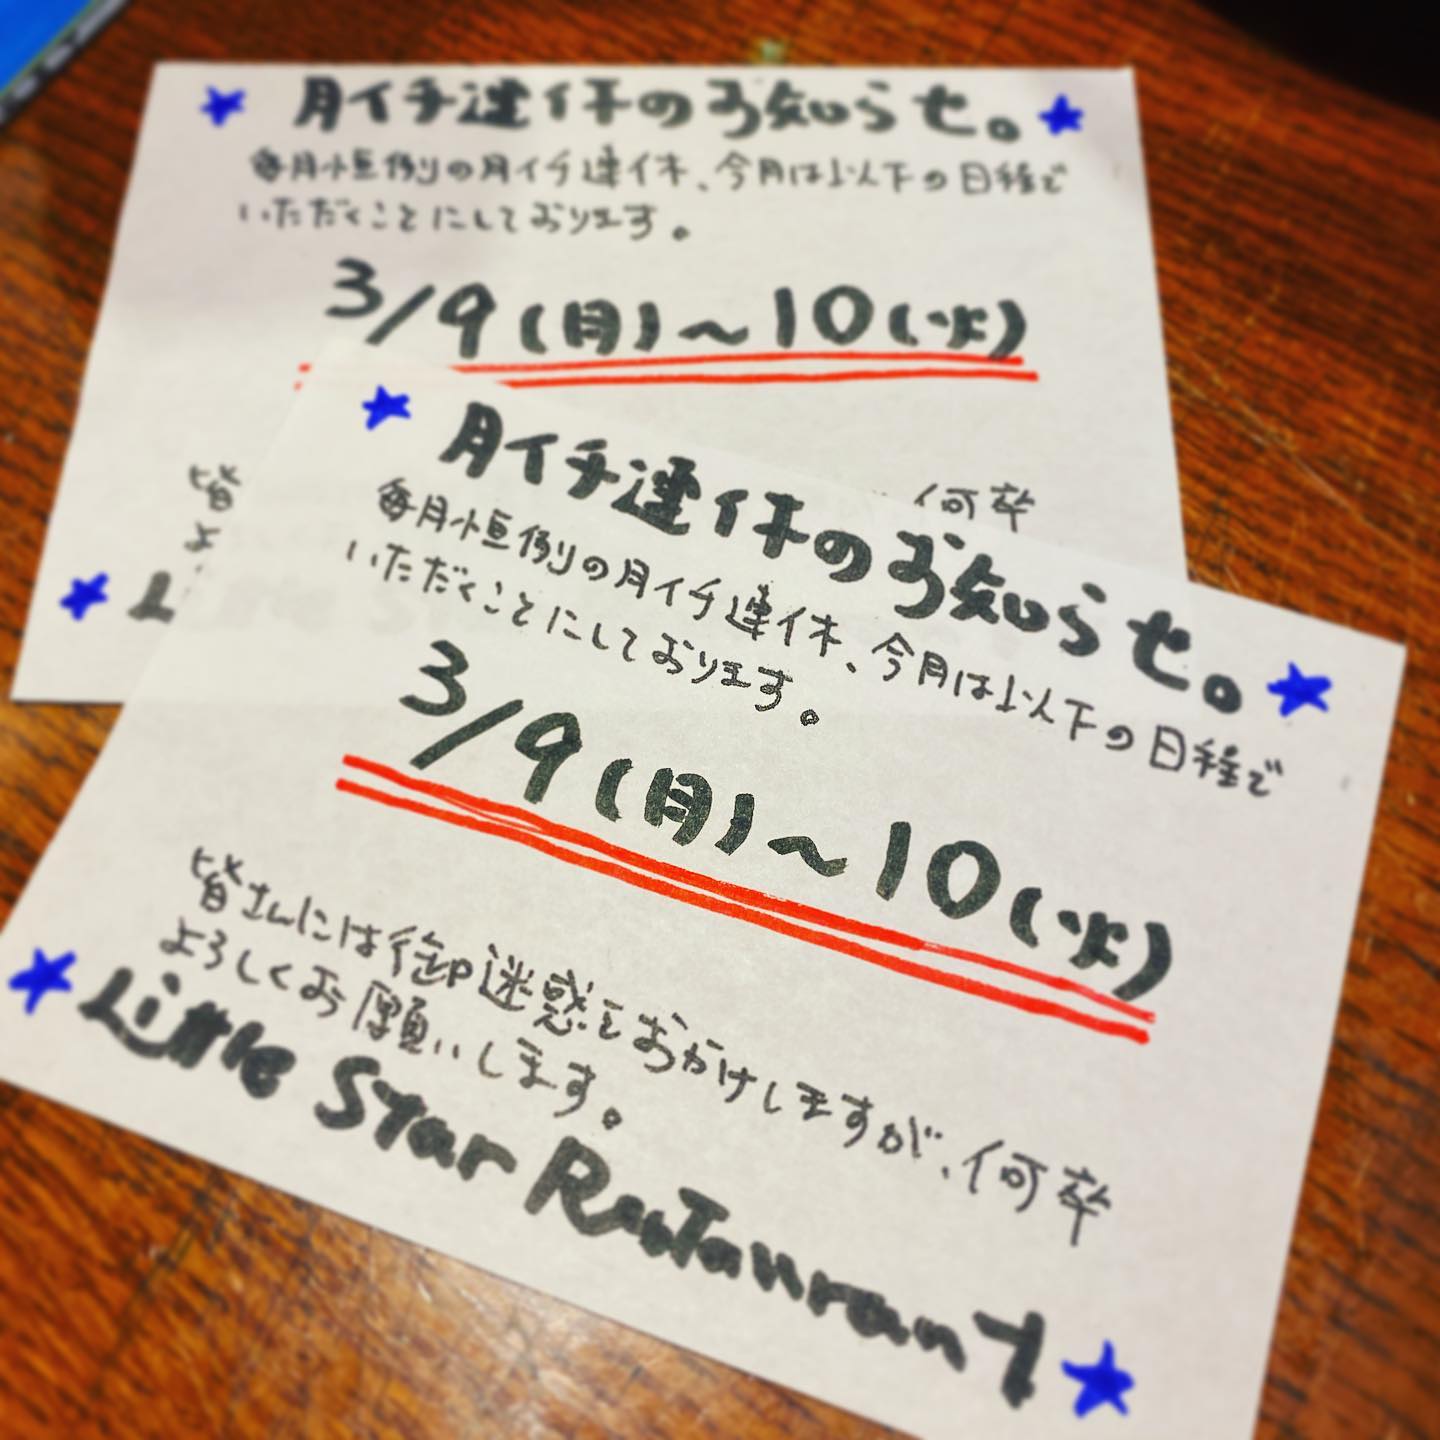 月イチ連休のお知らせ。
毎月恒例の月イチ連休、今月は以下の日程で
いただくことにしております。
3/9(月)~10(火)
何卒
皆
よ
Li
月イチ連休のお知らせ。
毎月恒例の月イチ連休、今月は以下の日程で
いただくことにしております。
3/9(月)~10(火)
皆さんには御迷惑をおかけしますが、何卒
よろしくお願いします。
Little Star Restaurant